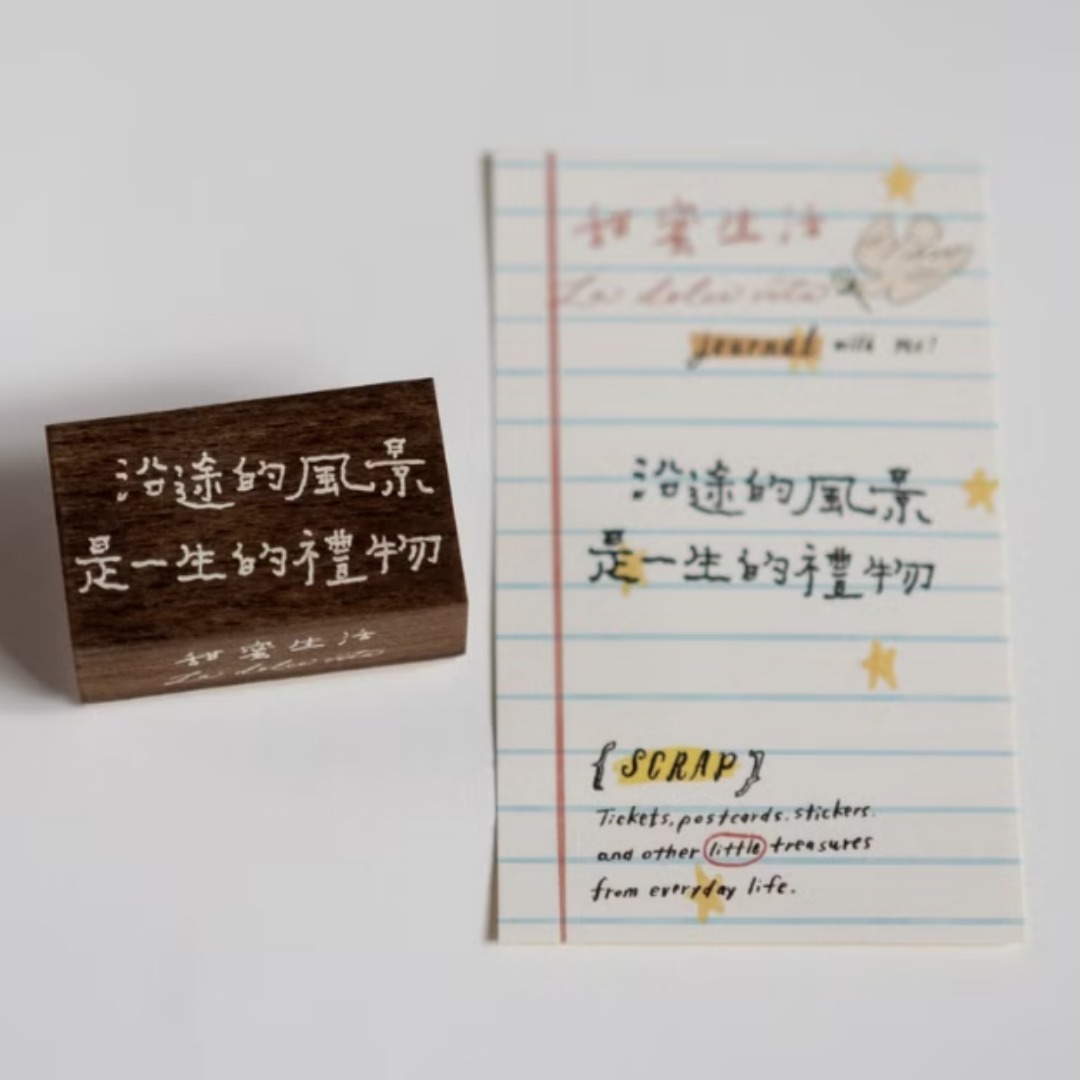 沿途的風景
是一生的禮物
甜蜜生活
La dolce vita
甜蜜生活
La dolce vita
journal with me!
沿途的風景
是一生的禮物
{SCRAP}
Tickets, postcards. stickers.
and other little treasures
from everyday life.